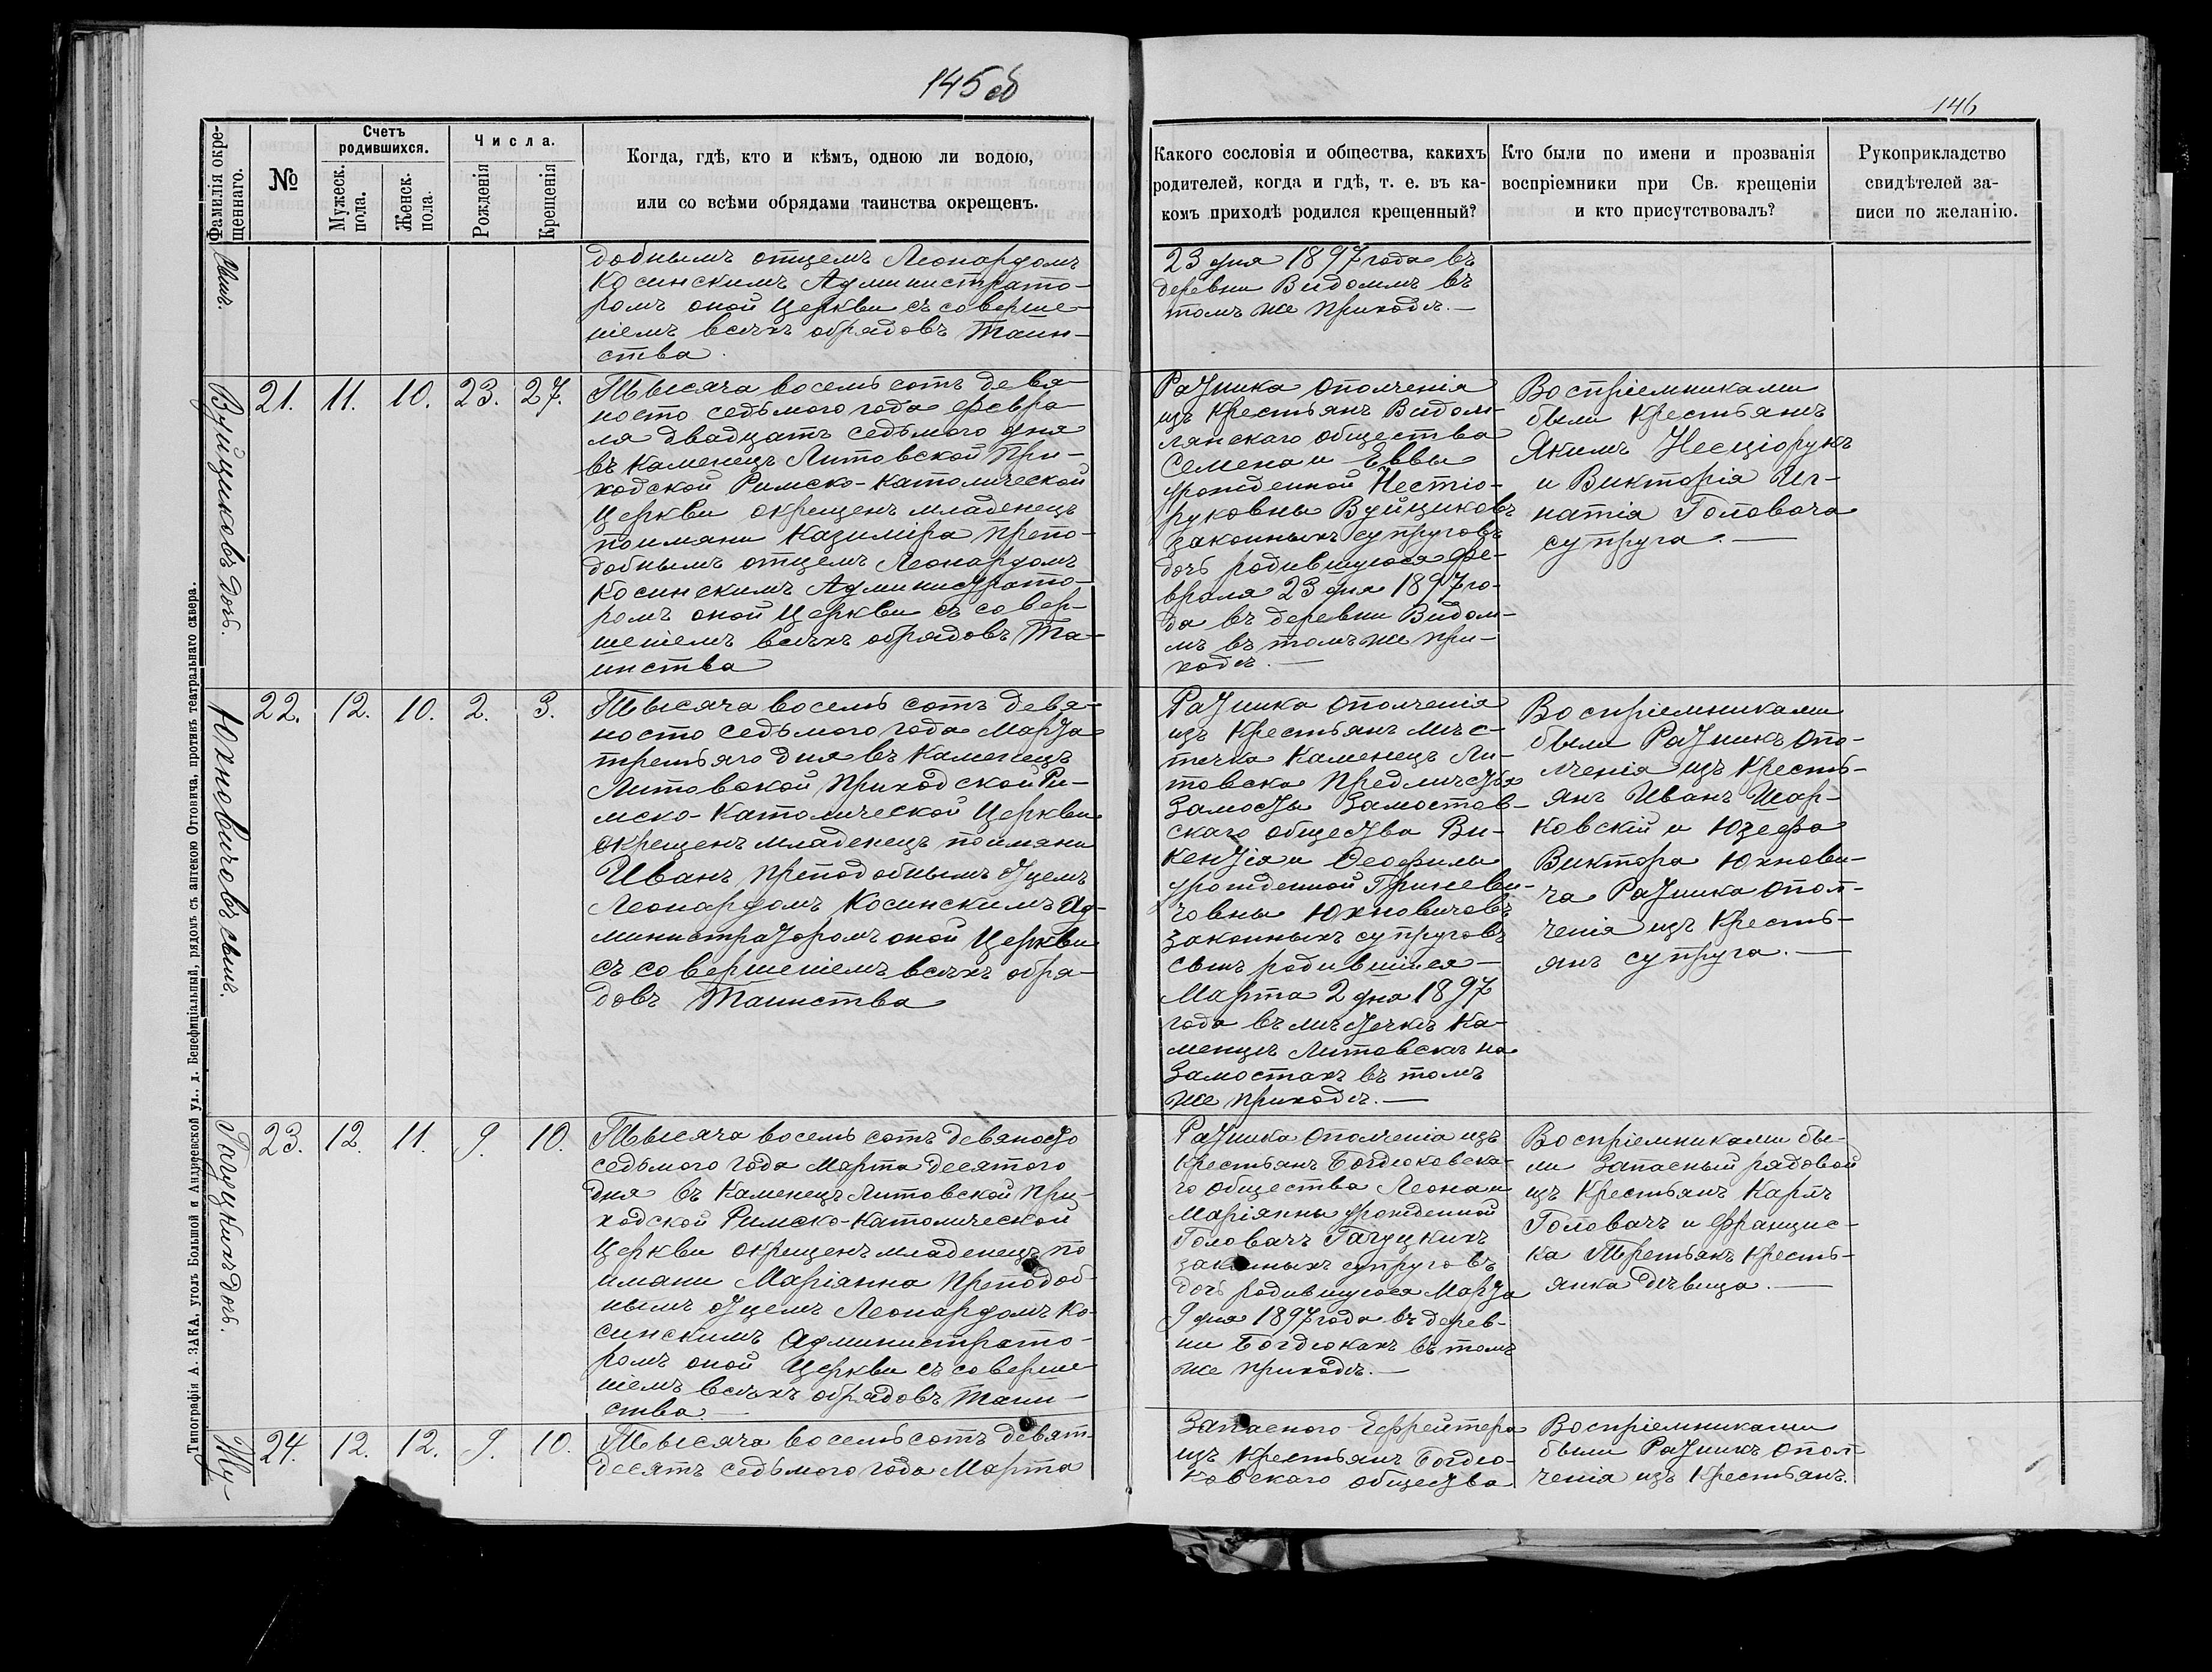 145 об
146
Фамилія окре-
щеннаго.
№
Счетъ
родившихся.
Мужеск.
пола.
Женск.
пола.
Числа.
Рожденія
Крещенія
Когда, гдѣ, кто и кѣмъ, одною ли водою,
или со всѣми обрядами таинства окрещенъ.
Какого сословія и общества, какихъ
родителей, когда и гдѣ, т. е. въ ка-
комъ приходѣ родился крещенный?
Кто были по имени и прозванія
воспріемники при Св. крещеніи
и кто присутствовалъ?
Рукоприкладство
свидѣтелей за-
писи по желанію.
сынъ.
добнымъ отцемъ Леонардомъ
Косинскимъ Администрато-
ромъ оной Церкви съ соверше-
ніемъ всѣхъ обрядовъ Таин-
ства.
23 дня 1897 года въ
деревни Видомлѣ въ
томъ же приходѣ.—
Вуйциковъ дочь.
21. 11. 10. 23. 27.
Тысяча восемь сотъ девя-
носто седьмого года Февра-
ля двадцать седьмого дня
въ Каменецъ Литовской При-
ходской Римско-Католической
Церкви окрещенъ младенецъ
поимяни Казиміра Препо-
добнымъ отцемъ Леонардомъ
Косинскимъ Администрато-
ромъ оной Церкви съ совер-
шеніемъ всѣхъ обрядовъ Та-
инства
Ратника Ополченія
изъ Крестьянъ Видом-
лянскаго общества
Семена и Еввы
урожденной Нестіо-
руковны Вуйциковъ
законныхъ супруговъ
дочь родившуюся Фе-
враля 23 дня 1897 го-
да въ деревни Видом-
лѣ въ томъ же при-
ходѣ.—
Воспріемниками
были Крестьянъ
Якимъ Несціорукъ
и Викторія Иг-
натія Головача
супруга.—
Юхновичовъ сынъ.
22. 12. 10. 2. 3.
Тысяча восемь сотъ девя-
носто седьмого года Марта
третьяго дня въ Каменецъ
Литовской Приходской Ри-
мско-Католической Церкви
окрещенъ младенецъ поимяни
Иванъ Преподобнымъ Отцемъ
Леонардомъ Косинскимъ Ад-
министраторомъ оной Церкви
съ совершеніемъ всѣхъ обря-
довъ Таинства
Ратника Ополченія
изъ Крестьянъ Мѣс-
течка Каменецъ Ли-
товска Предмѣстья
Замосты Замостов-
скаго общества Ви-
кентія и Ѳеофили
урожденной Гриневи-
човны Юхновичовъ
законныхъ супруговъ
сынъ родившійся—
Марта 2 дня 1897
года въ мѣстечкѣ Ка-
менцѣ Литовскѣ на
Замостахъ въ томъ
же приходѣ.—
Воспріемниками
были Ратникъ Опо-
лченія изъ Кресть-
янъ Иванъ Шар-
ковскій и Юзефа
Виктора Юхнови-
ча Ратника Опол-
ченія изъ Кресть-
янъ супруга.—
Гачуцкихъ дочь.
23. 12. 11. 9. 10.
Тысяча восемь сотъ девяносто
седьмого года Марта десятого
дня въ Каменецъ Литовской При-
ходской Римско-Католической
Церкви окрещенъ младенецъ по
имяни Маріанна Преподоб-
нымъ Отцемъ Леонардомъ Ко-
синскимъ Администрато-
ромъ оной Церкви съ соверше-
ніемъ всѣхъ обрядовъ Таин-
ства.
Ратника Ополченія изъ
Крестьянъ Богдюковска-
го общества Леона и
Маріянны урожденной
Головачъ Гачуцкихъ
законныхъ супруговъ
дочь родившуюся Марта
9 дня 1897 года въ дерев-
ни Богдюкахъ въ томъ
же приходѣ.—
Воспріемниками бы-
ли Запасный рядовой
изъ Крестьянъ Карлъ
Головачъ и Францис-
ка Третьякъ Кресть-
янка Дѣвица.—
Жу-
24. 12. 12. 9. 10.
Тысяча восемь сотъ девят-
десятъ седьмого года Марта
Запасного Ефрейтера
изъ Крестьянъ Богдю-
ковскаго общества
Воспріемниками
были Ратникъ Опол-
ченія изъ Крестьянъ.
Типографія А. ЗАКА, уголъ Большой и Андреевской ул., д. Бенефиціальный, рядомъ съ аптекою Оттовича, противъ театральнаго сквера.